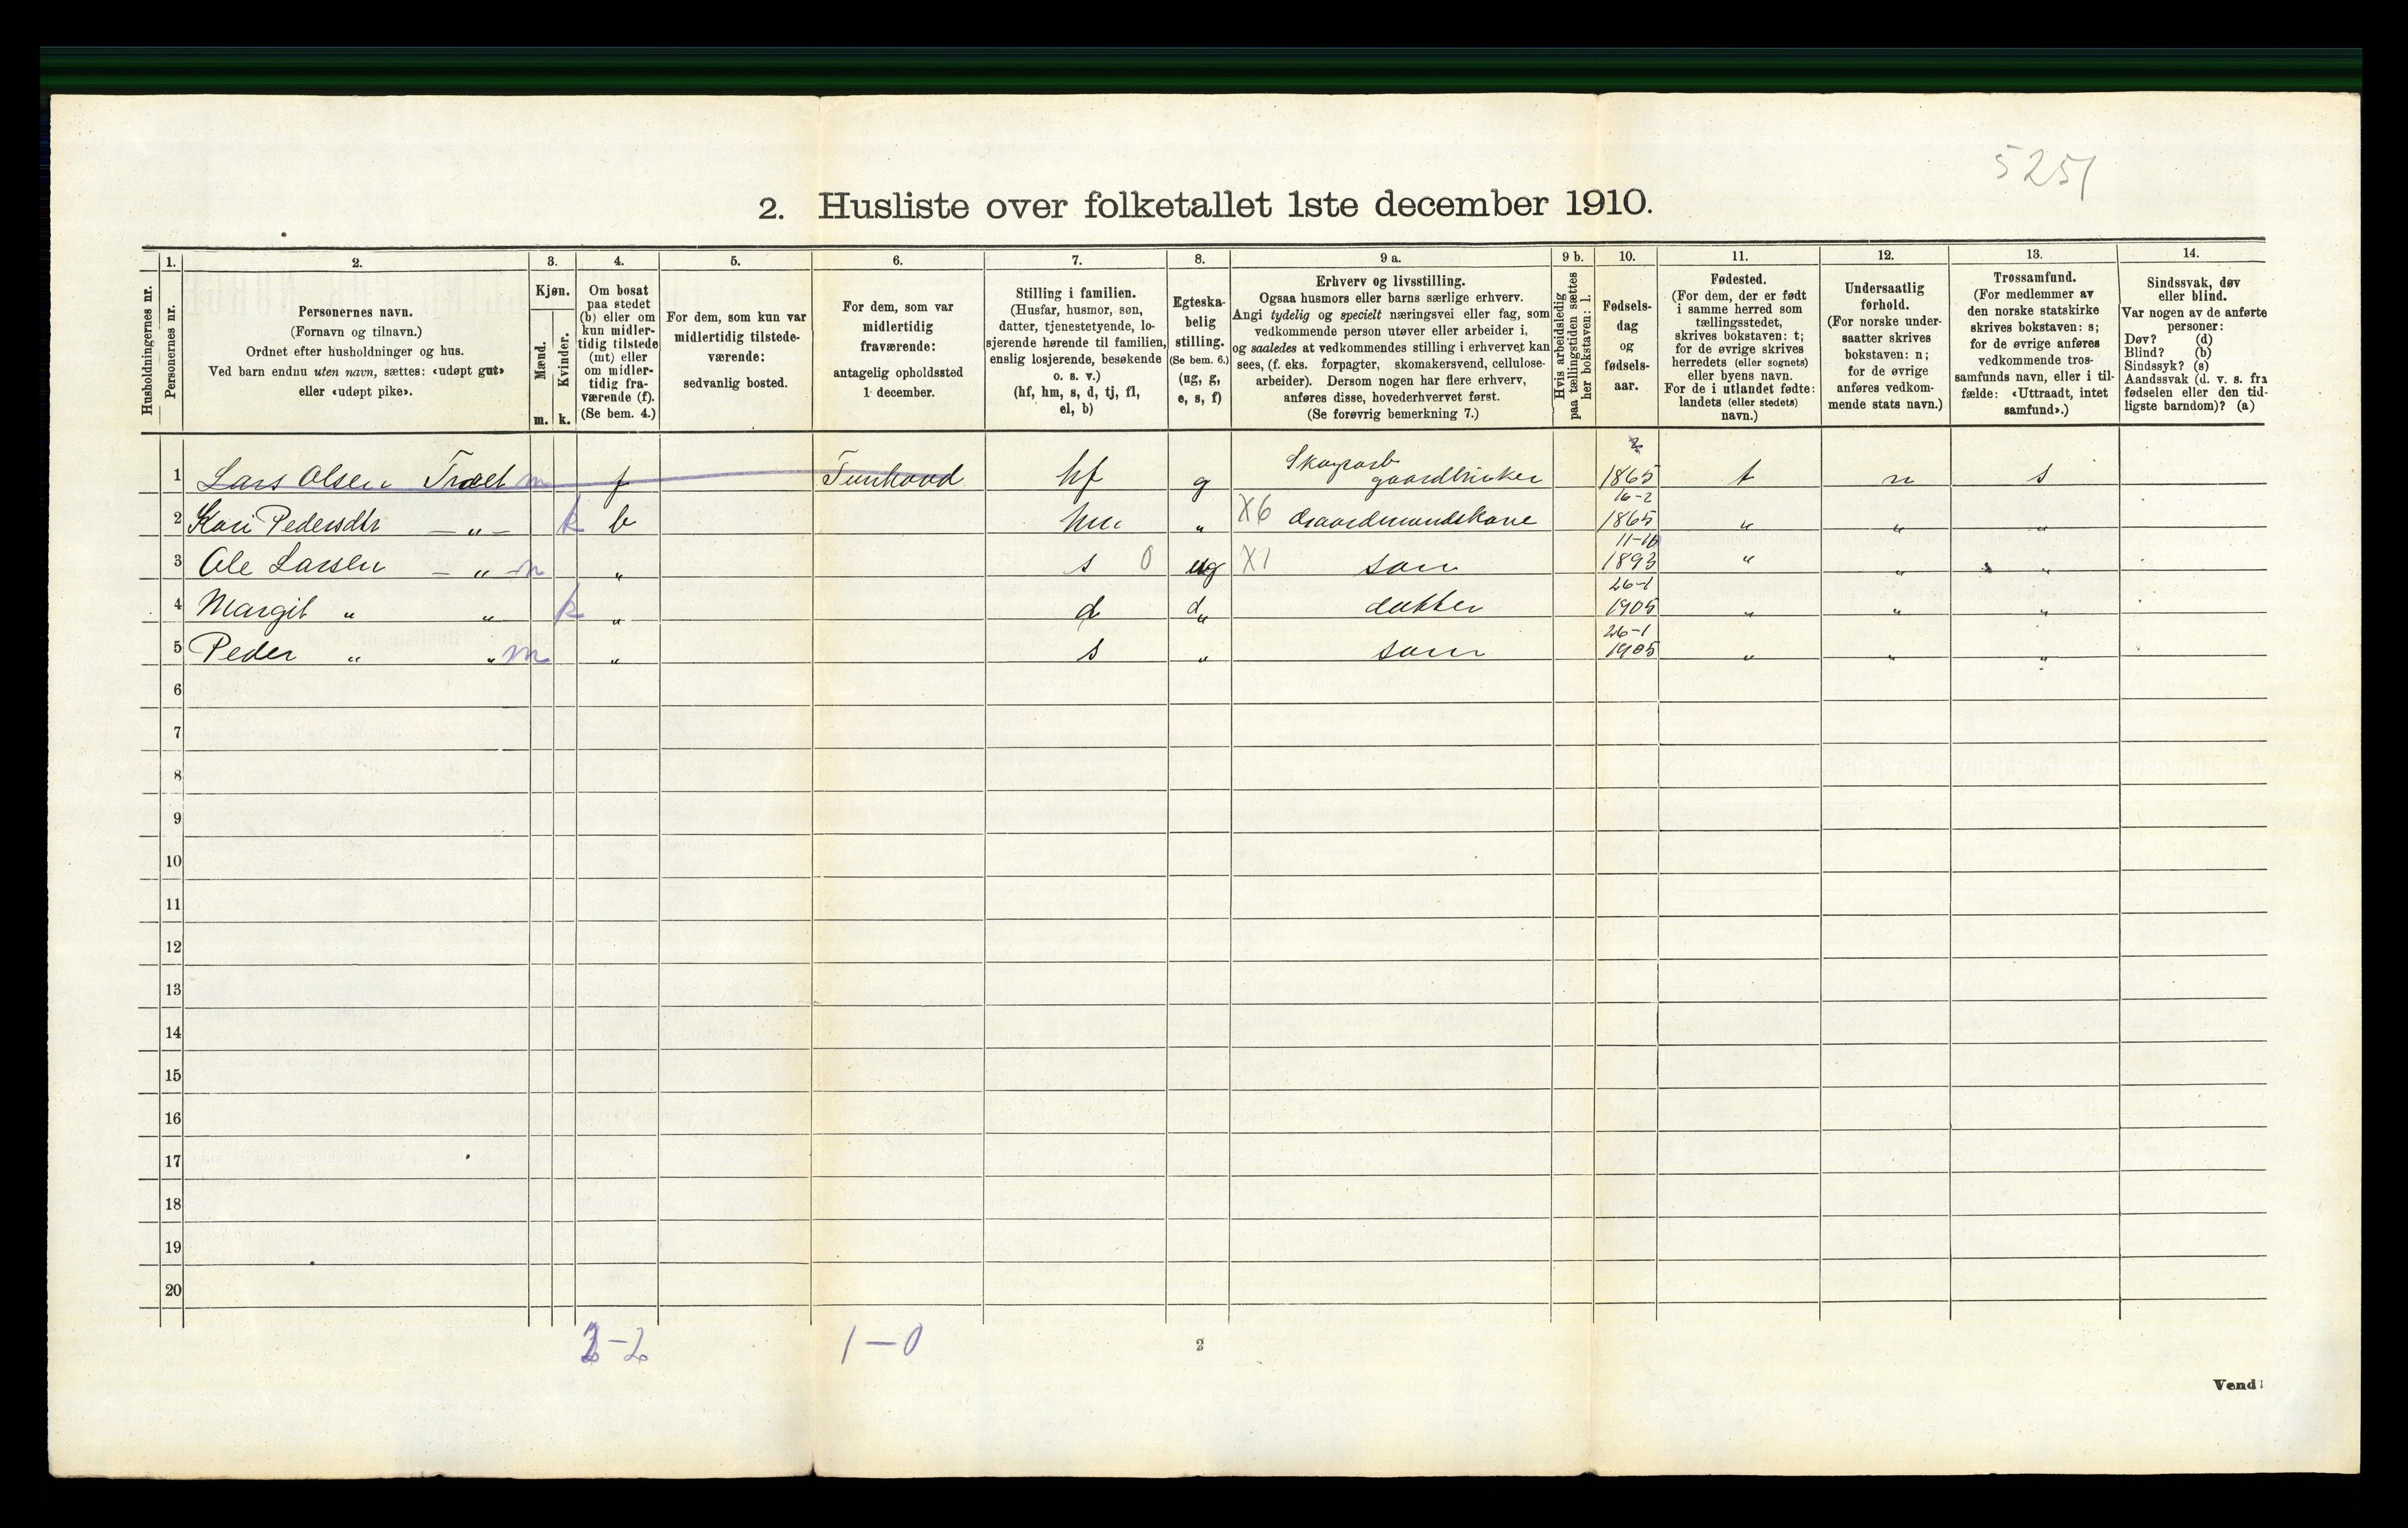 5251
2. Husliste over folketallet 1ste december 1910.
Husholdningernes nr.
1.
Personernes nr.
2.
Personernes navn.
(Fornavn og tilnavn.)
Ordnet efter husholdninger og hus.
Ved barn endnu uten navn, sættes: «udøpt gut»
eller «udøpt pike».
3.
Kjøn.
Mænd.
Kvinder.
m. k.
4.
Om bosat
paa stedet
(b) eller om
kun midler-
tidig tilstede
(mt) eller
om midler-
tidig fra-
værende (f).
(Se bem. 4.)
5.
For dem, som kun var
midlertidig tilstede-
værende:
sedvanlig bosted.
6.
For dem, som var
midlertidig
fraværende:
antagelig opholdssted
1 december.
7.
Stilling i familien.
(Husfar, husmor, søn,
datter, tjenestetyende, lo-
sjerende hørende til familien,
enslig losjerende, besøkende
o. s. v.)
(hf, hm, s, d, tj, fl,
el, b)
8.
Egteska-
belig
stilling.
(Se bem. 6.)
(ug, g,
e, s, f)
9 a.
Erhverv og livsstilling.
Ogsaa husmors eller barns særlige erhverv.
Angi tydelig og specielt næringsvei eller fag, som
vedkommende person utøver eller arbeider i,
og saaledes at vedkommendes stilling i erhvervet kan
sees, (f. eks. forpagter, skomakersvend, cellulose-
arbeider). Dersom nogen har flere erhverv,
anføres disse, hovederhvervet først.
(Se forøvrig bemerkning 7.)
9 b.
Hvis arbeidsledig
paa tællingstiden sættes
her bokstaven: l.
10.
Fødsels-
dag
og
fødsels-
aar.
11.
Fødested.
(For dem, der er født
i samme herred som
tællingsstedet,
skrives bokstaven: t;
for de øvrige skrives
herredets (eller sognets)
eller byens navn.
For de i utlandet fødte:
landets (eller stedets)
navn.)
12.
Undersaatlig
forhold.
(For norske under-
saatter skrives
bokstaven: n;
for de øvrige
anføres vedkom-
mende stats navn.)
13.
Trossamfund.
(For medlemmer av
den norske statskirke
skrives bokstaven: s;
for de øvrige anføres
vedkommende tros-
samfunds navn, eller i til-
fælde: «Uttraadt, intet
samfund».)
14.
Sindssvak, døv
eller blind.
Var nogen av de anførte
personer:
Døv? (d)
Blind? (b)
Sindssyk? (s)
Aandssvak (d. v. s. fra
fødselen eller den tid-
ligste barndom)? (a)
1 Lars Olsen Træet m f Tunhovd hf g Skogsarb gaardbruker 1865 t n s
2 Kari Pedersdtr — „ — k b hm „ X6 Gaardmandskone 16-2 1865 „ „ „
3 Ole Larsen — „ — m „ s 0 ug X1 søn 11-10 1893 „ „ „
4 Margit „ „ k „ d „ datter 26-1 1905 „ „ „
5 Peder „ „ m „ s „ søn 26-1 1905 „ „ „
6
7
8
9
10
11
12
13
14
15
16
17
18
19
20
2-2 1-0
2
Vend!